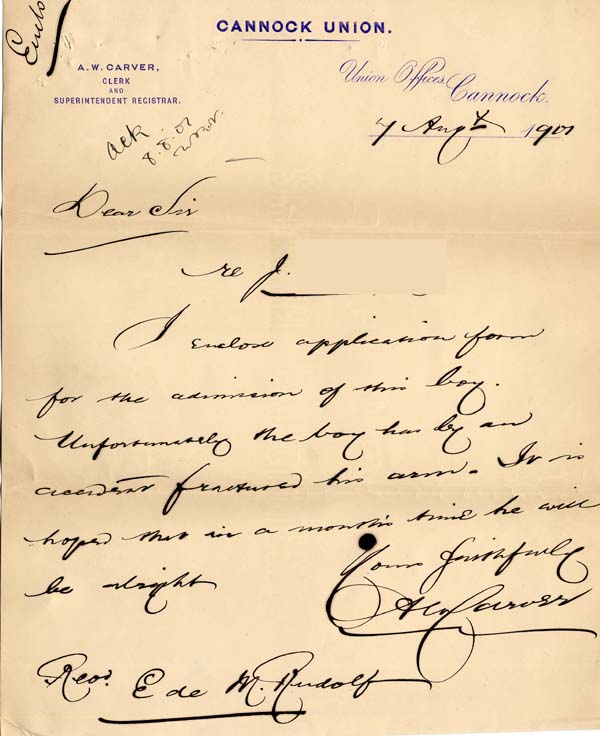 Encls
CANNOCK UNION.
A. W. CARVER,
CLERK
AND
SUPERINTENDENT REGISTRAR.
Union Offices,
Cannock.
7 Augt 1901
ack
8.8.01
Dear Sir
re J.
I enclose application form
for the admission of this boy.
Unfortunately the boy has by an
accident fractured his arm. It is
hoped that in a month's time he will
be alright
Yours faithfully
AWCarver
Revd. E de M. Rudolf